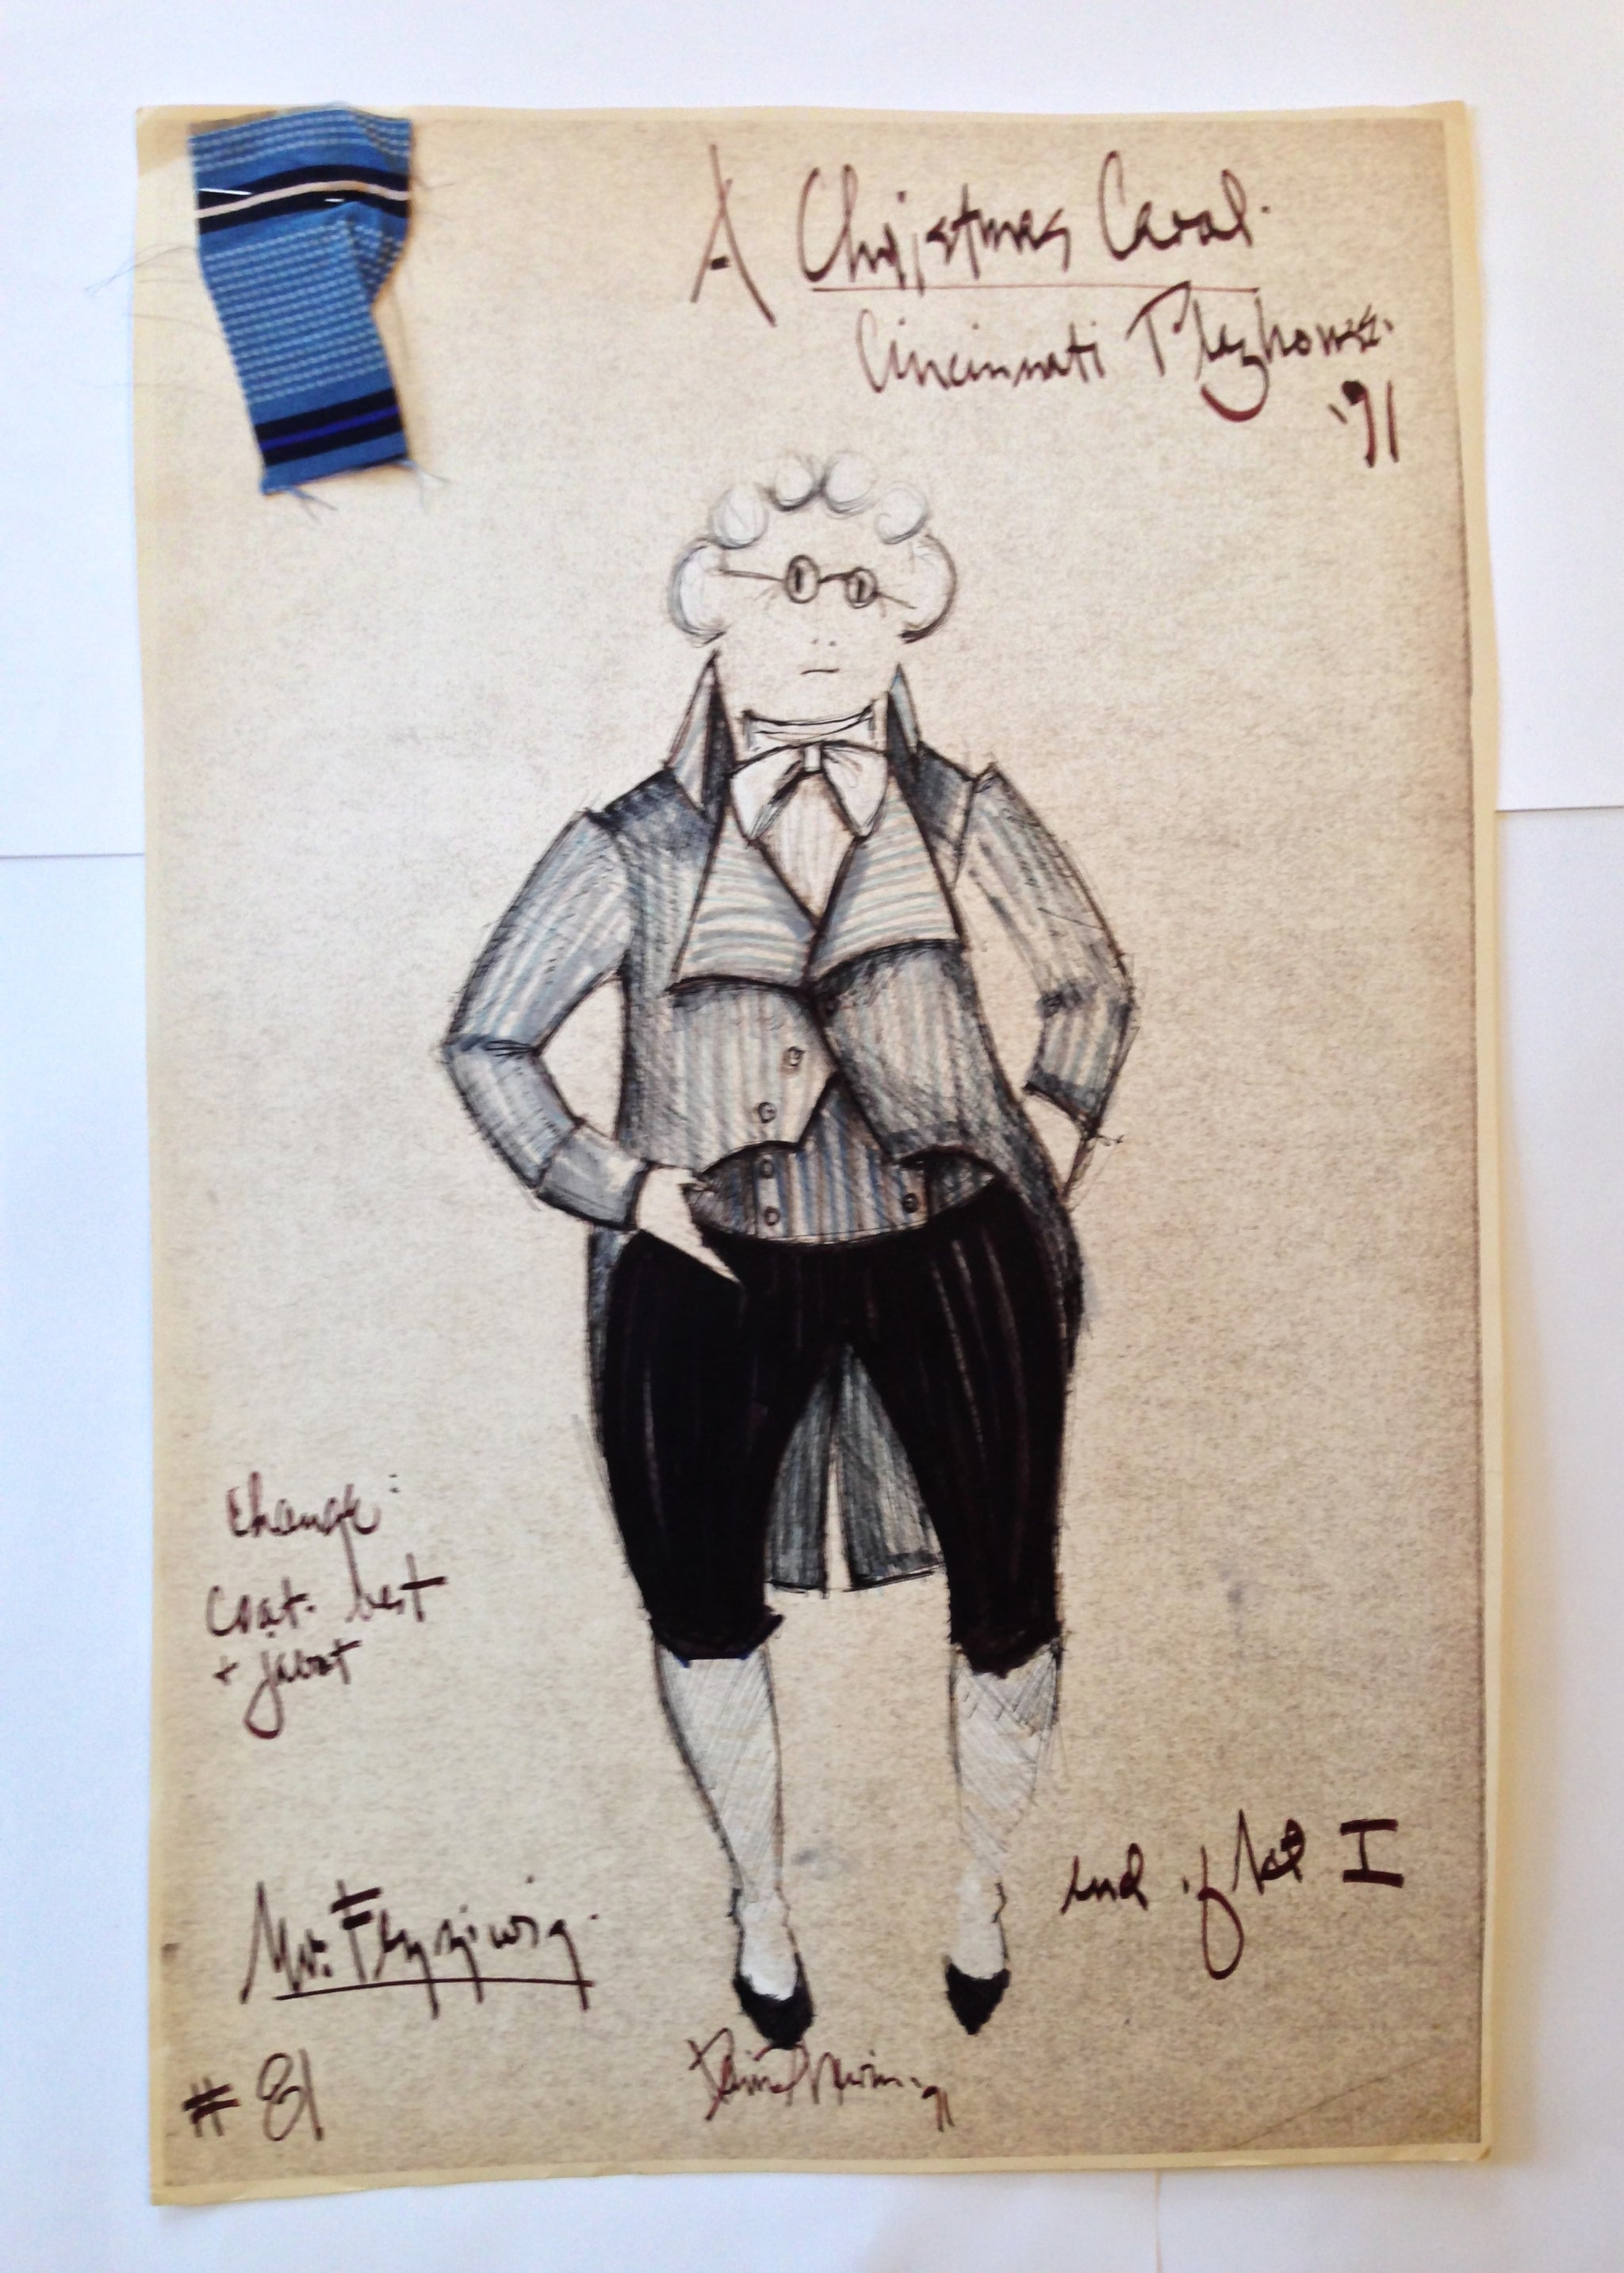 A Christmas Carol.
Cincinnati Playhouse.
'91
change:
coat. vest
+ jabot
end of Act I
Mr. Fezziwig.
# 81
David Murin. 91